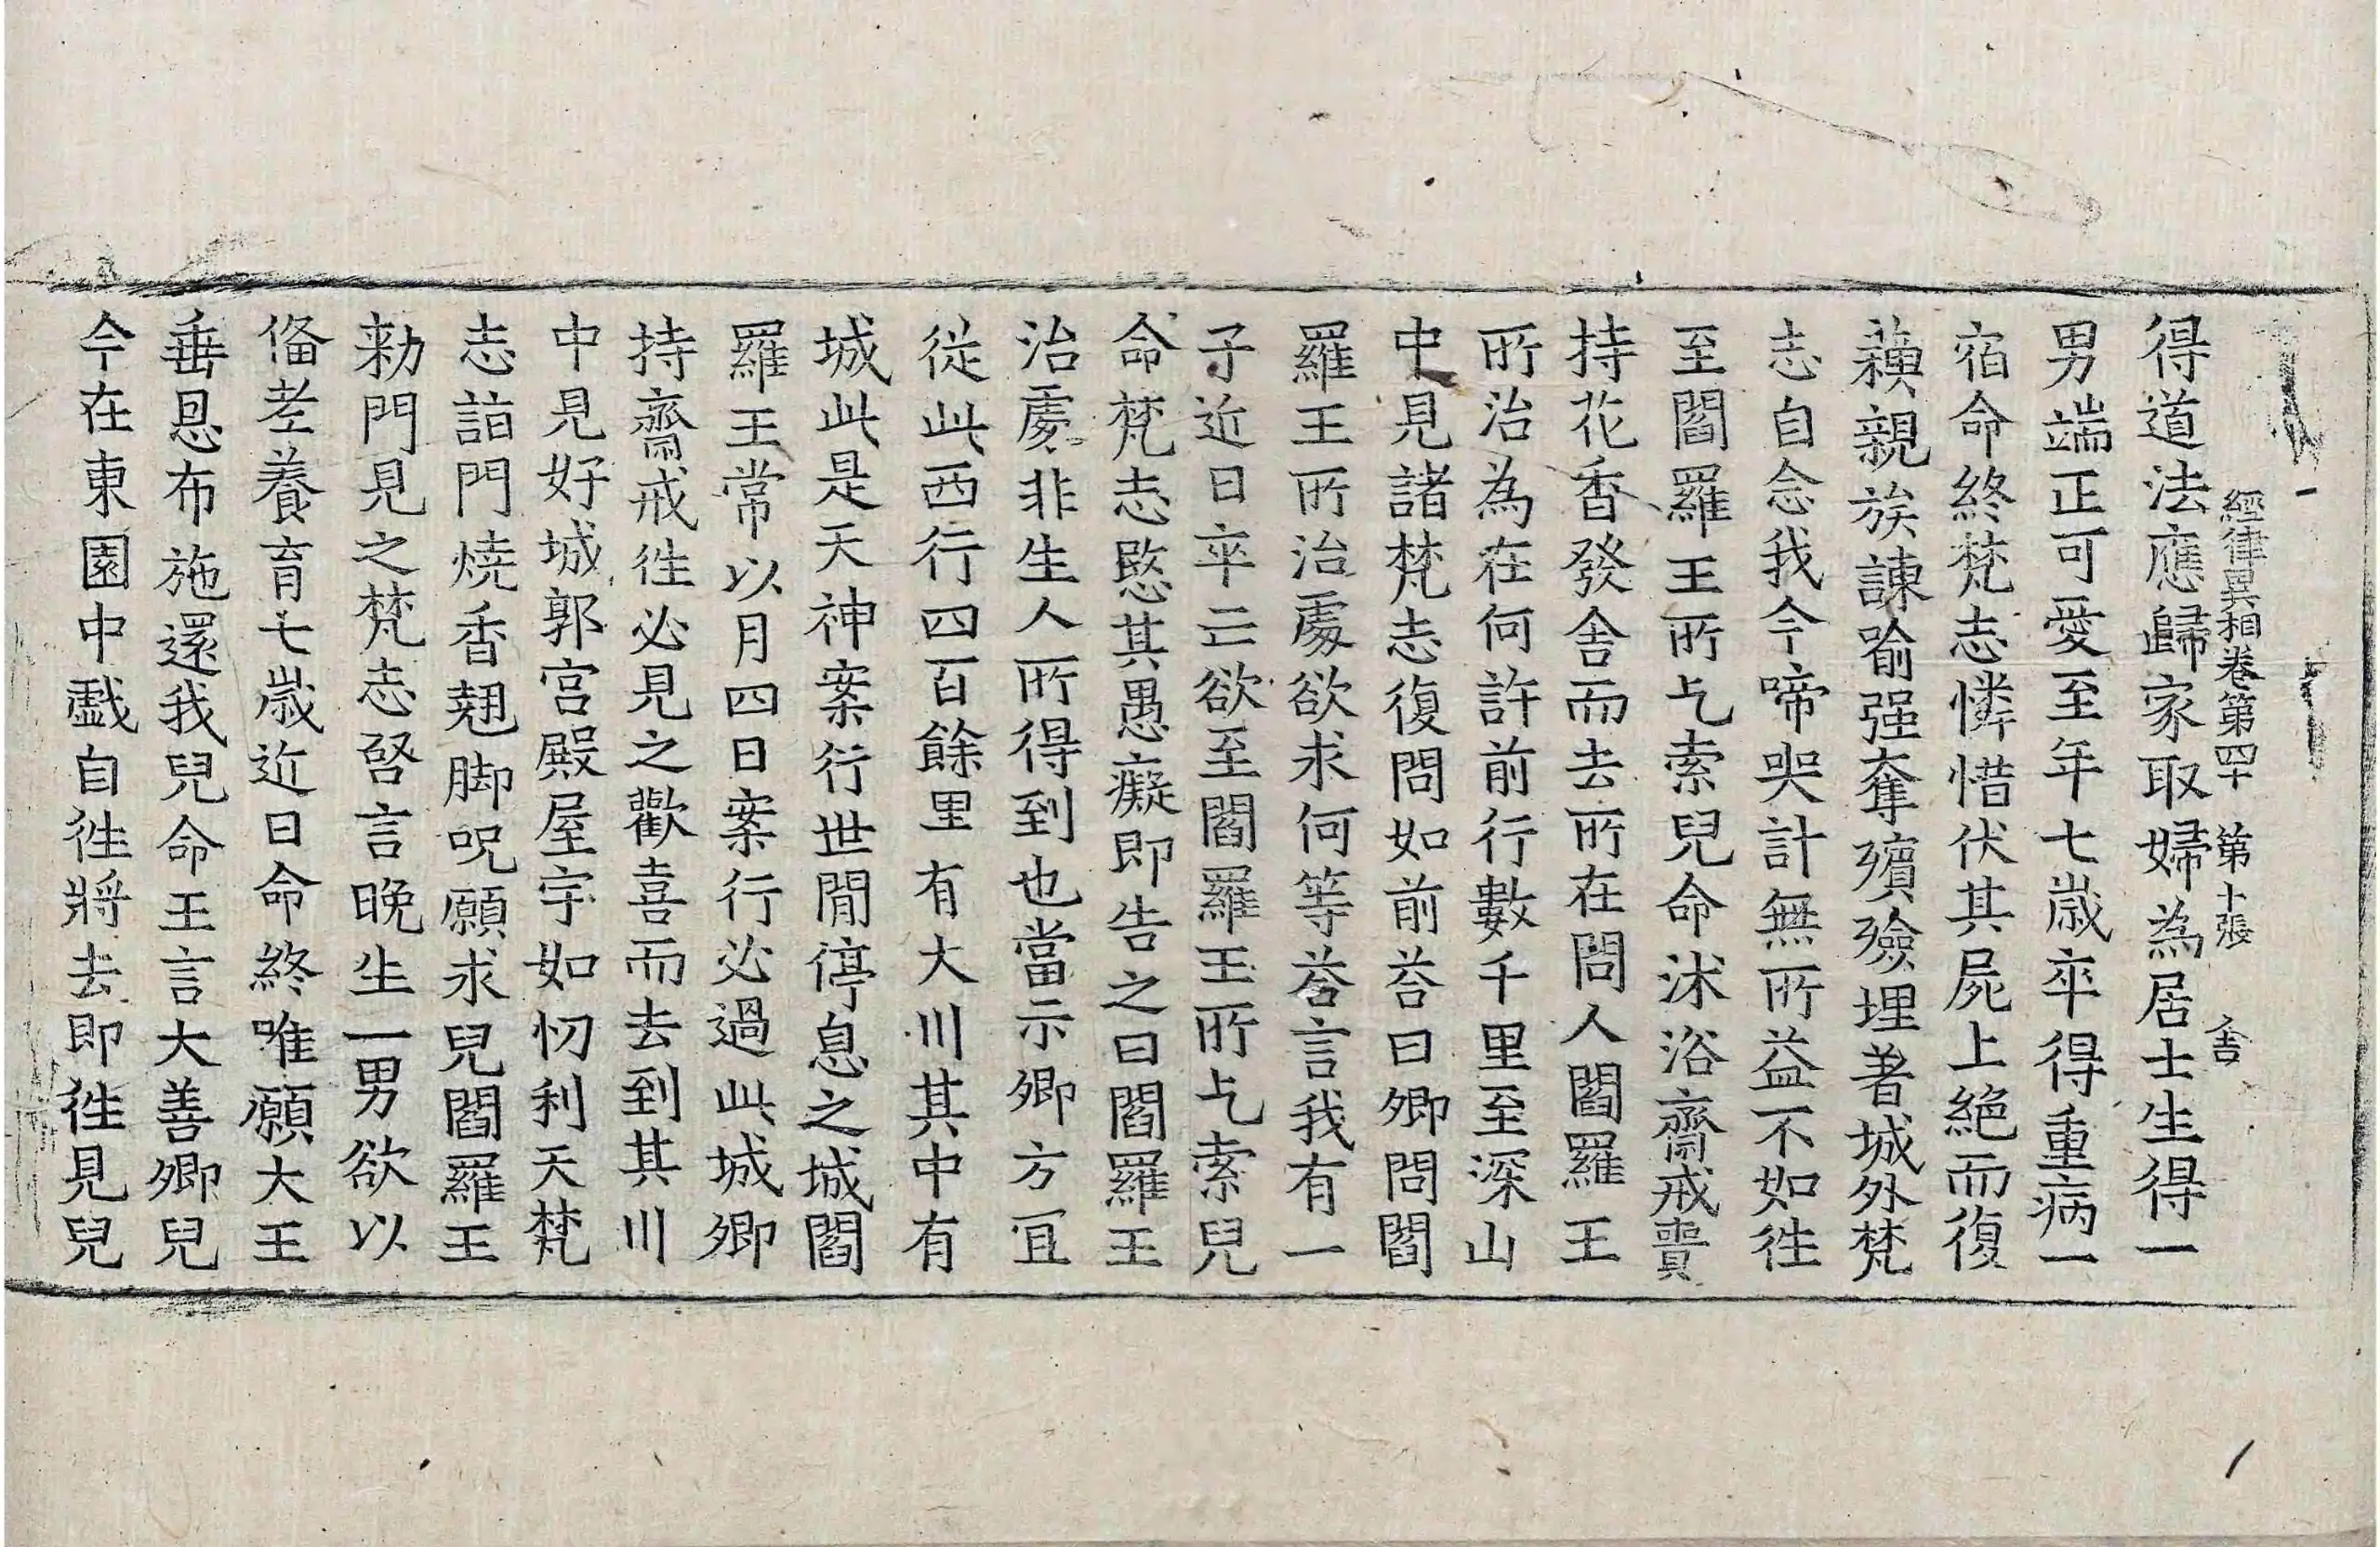 經律異相卷第四十　第十張　舍
得道法應歸家取婦為居士生得一
男端正可愛至年七歲卒得重病一
宿命終梵志憐惜伏其屍上絕而復
蘓親族諫喻强奪殯殮埋著城外梵
志自念我今啼哭計無所益不如往
至閻羅王所乞索兒命沐浴齋戒賷
持花香發舍而去所在問人閻羅王
所治為在何許前行數千里至深山
中見諸梵志復問如前荅曰卿問閻
羅王所治處欲求何等荅言我有一
子近日卒亡欲至閻羅王所乞索兒
命梵志愍其愚癡即告之曰閻羅王
治處非生人所得到也當示卿方冝
從此西行四百餘里有大川其中有
城此是天神案行世閒停息之城閻
羅王常以月四日案行必過此城卿
持齋戒往必見之歡喜而去到其川
中見好城郭宫殿屋宇如忉利天梵
志詣門燒香翹脚呪願求見閻羅王
勑門見之梵志啓言晚生一男欲以
俻老養育七歲近日命終唯願大王
垂恩布施還我兒命王言大善卿兒
今在東園中戲自往將去即往見兒